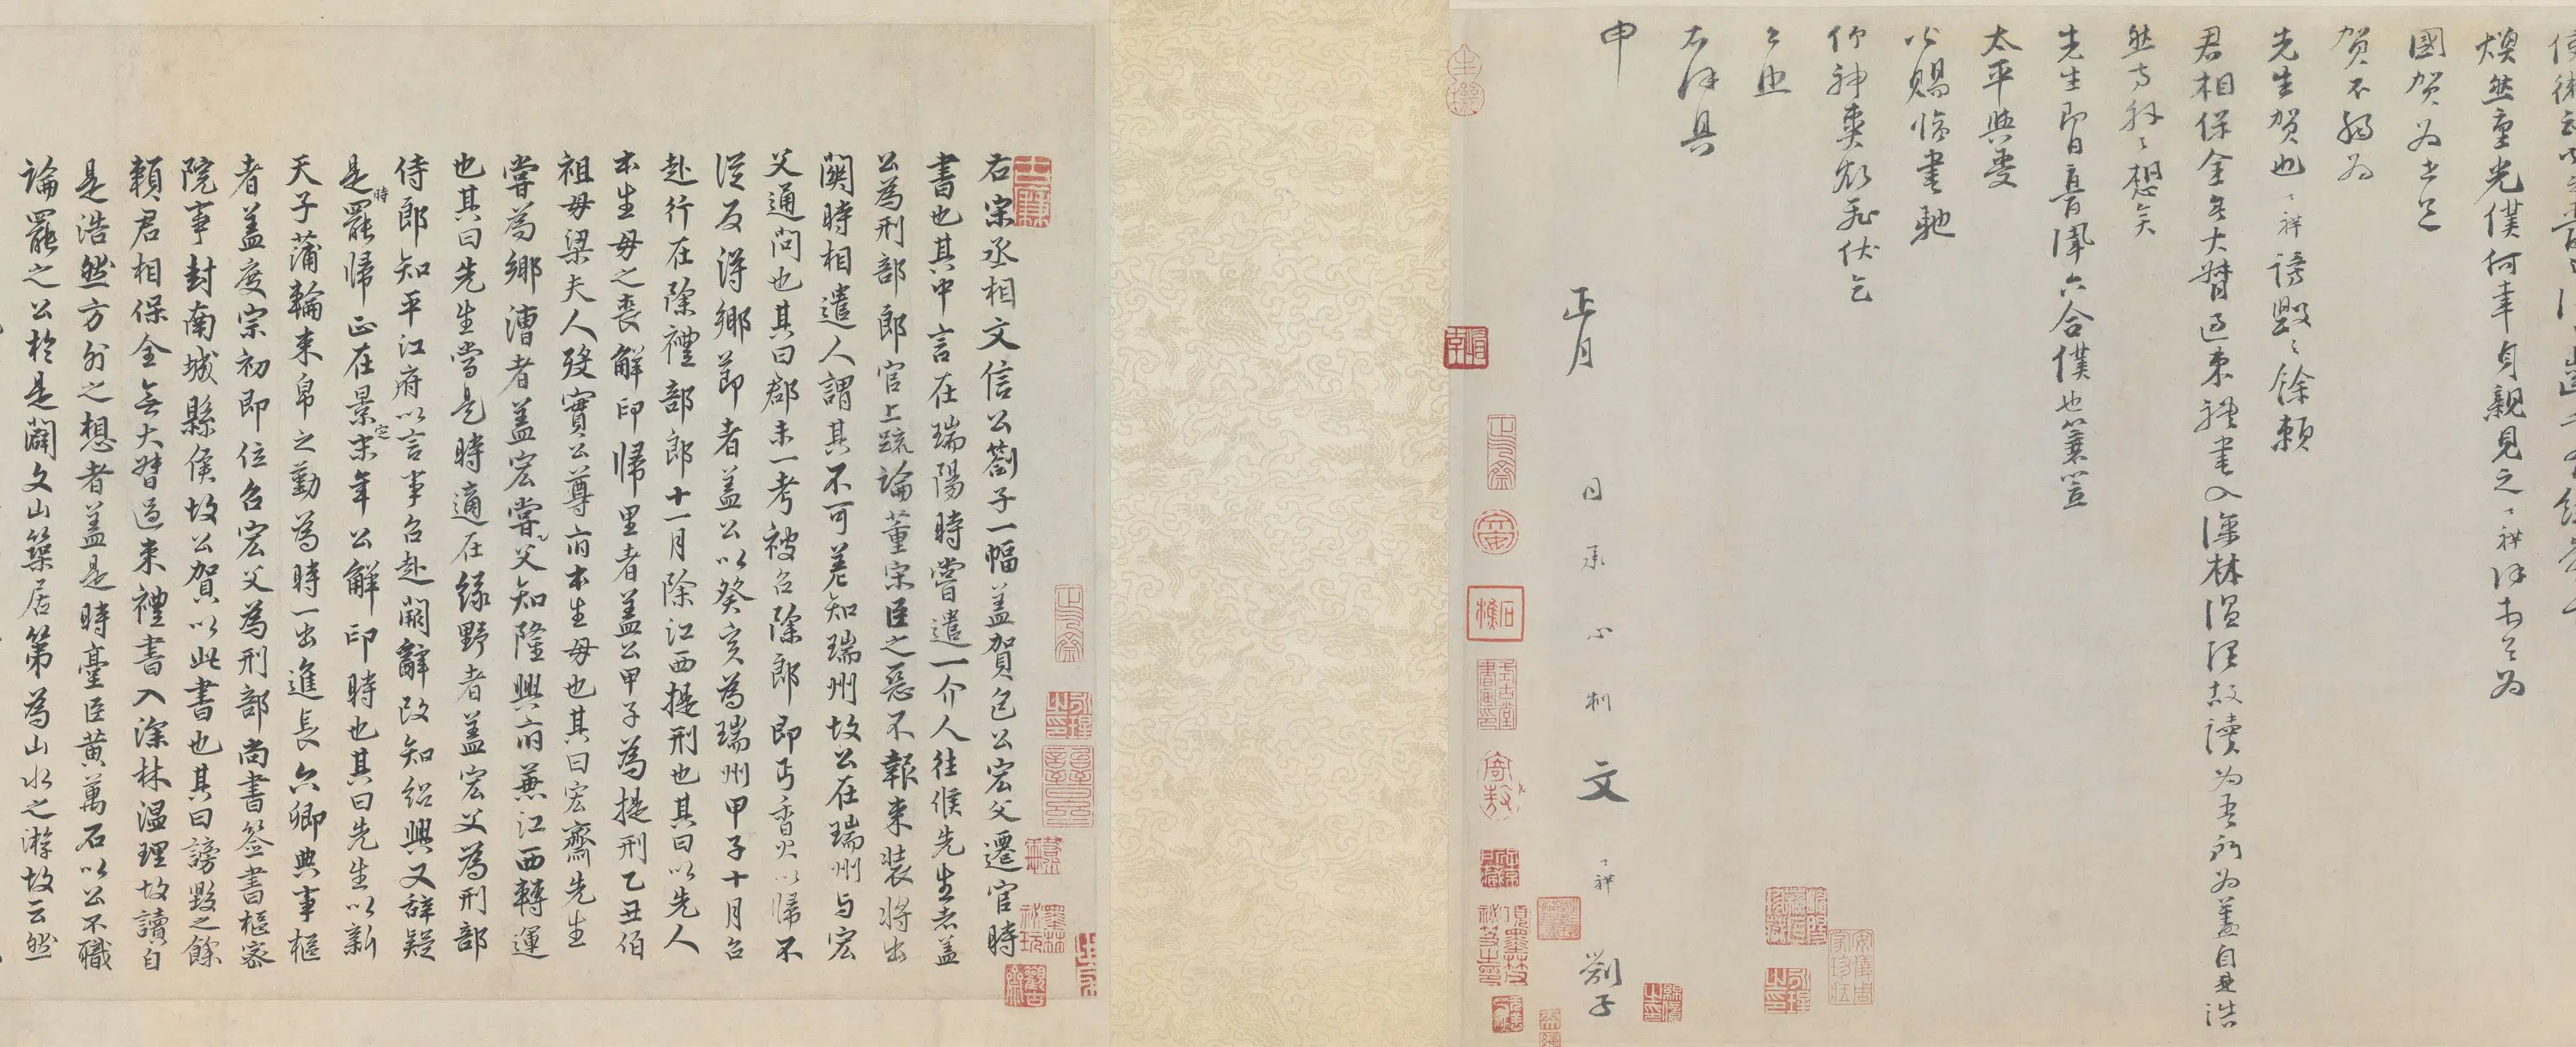 煥然重光僕何幸身親見之天祥
國賀為世道
賀不獨為
先生賀也天祥謗毀之餘賴
君相保全無大督過束裝書入深林温理故讀為吾所為蓋自是浩
然方外之想矣
先生即日音闻六合僕也蓑笠
太平與受
公賜臨書馳
仰神爽飛越伏乞
台照
右謹具
申
正月 日承心制文天祥劄子
右宗丞相文信公劄子一幅蓋賀包公宏父遷官時
書也其中言在瑞陽時嘗遣一介人往候先生者蓋
公為刑部郎官上疏論董宋臣之惡不報束裝將出
關時相遣人謂其不可差知瑞州故公在瑞州与宏
父通問也其曰郡未一考被召除郎即丐香火以歸不
從反得鄉節者蓋公以癸亥為瑞州甲子十月召
赴行在除禮部郎十一月除江西提刑也其曰以先人
本生母之喪解印歸里者蓋公甲子為提刑乙丑伯
祖母梁夫人歿實公尊府本生母也其曰宏齋先生
嘗為鄉漕者蓋宏嘗父知隆興府兼江西轉運
也其曰先生當是時適在綠野者蓋宏父為刑部
侍郎知平江府以言事召赴闕辭改知紹興又辭疑
是時罷歸正在景定宋年公解印時也其曰先生以新
天子蒲輪束帛之勤為時一出進長六卿典事樞
者蓋度宗初即位召宏父為刑部尚書簽書樞密
院事封南城縣侯故公賀以此書也其曰謗毀之餘
賴君相保全無大督過束禮書入深林温理故讀自
是浩然方外之想者蓋是時臺臣黃萬石以公不職
論罷之公於是闢文山築居第為山水之游故云然